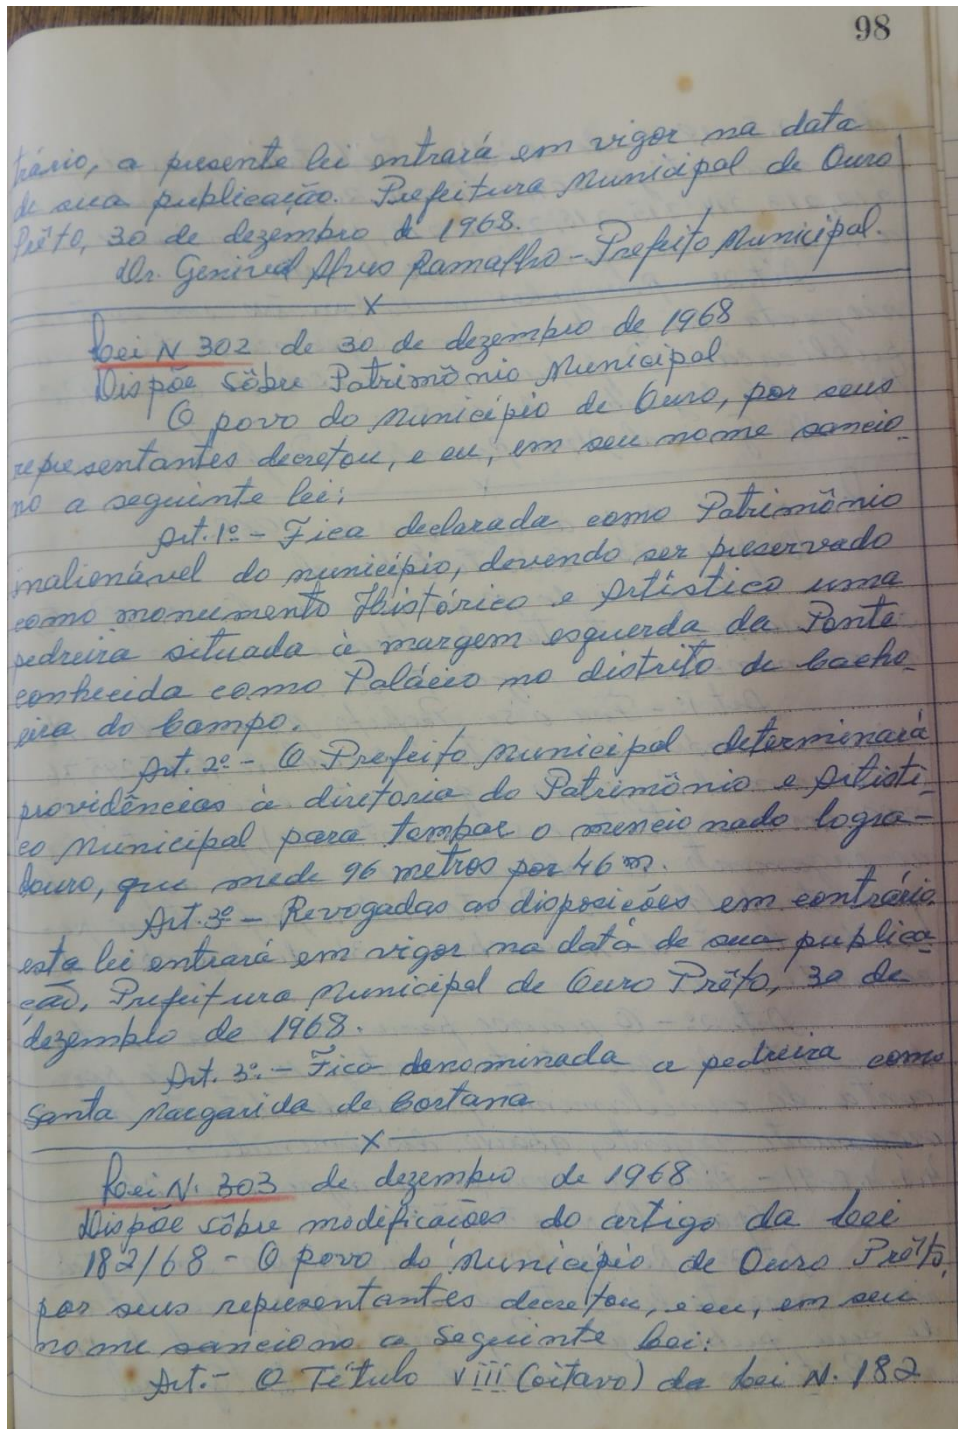 98
trário, a presente lei entrará em vigor na data
de sua publicação. Prefeitura Municipal de Ouro
Prêto, 30 de dezembro de 1968.
Dr. Genival Alves Ramalho - Prefeito Municipal.
x
Lei N 302 de 30 de dezembro de 1968
Dispõe sôbre Patrimônio Municipal
O povo do Município de Ouro, por seus
representantes decretou, e eu, em seu nome sancio-
no a seguinte lei:
Art. 1º - Fica declarada como Patrimônio
inalienável do município, devendo ser preservado
como monumento Histórico e Artístico uma
pedreira situada à margem esquerda da Ponte
conhecida como Palácio no distrito de Cacho-
eira do Campo.
Art. 2º - O Prefeito Municipal determinará
providências à diretoria do Patrimônio e Artísti-
co Municipal para tombar o mencionado logra-
douro, que mede 96 metros por 46 m.
Art. 3º - Revogadas as disposições em contrário,
esta lei entrará em vigor na data de sua publica-
ção. Prefeitura Municipal de Ouro Prêto, 30 de
dezembro de 1968.
Art. 3º. - Fica denominada a pedreira como
Santa Margarida de Cortana
x
Lei N. 303 de dezembro de 1968
Dispõe sôbre modificações do artigo da Lei
182/68 - O povo do Município de Ouro Prêto,
por seus representantes decretou, e eu, em seu
nome sanciono a Seguinte Lei:
Art. - O Título VIII (oitavo) da Lei N. 182